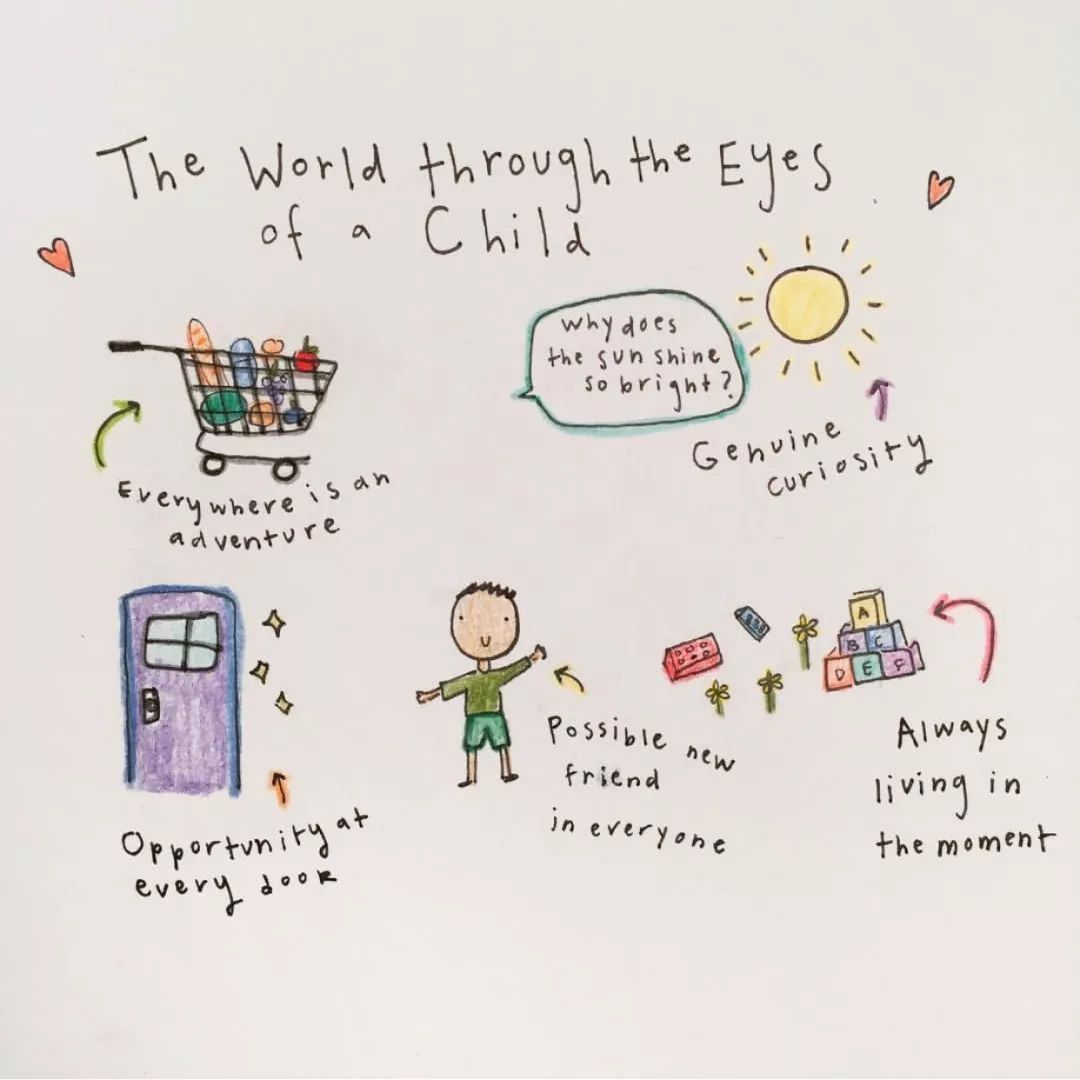 The World through the Eyes
of a Child
why does
the sun shine
so bright?
Genuine
curiosity
Everywhere is an
adventure
Opportunity at
every door
Possible new
friend
in everyone
A
B C
D E F
Always
living in
the moment